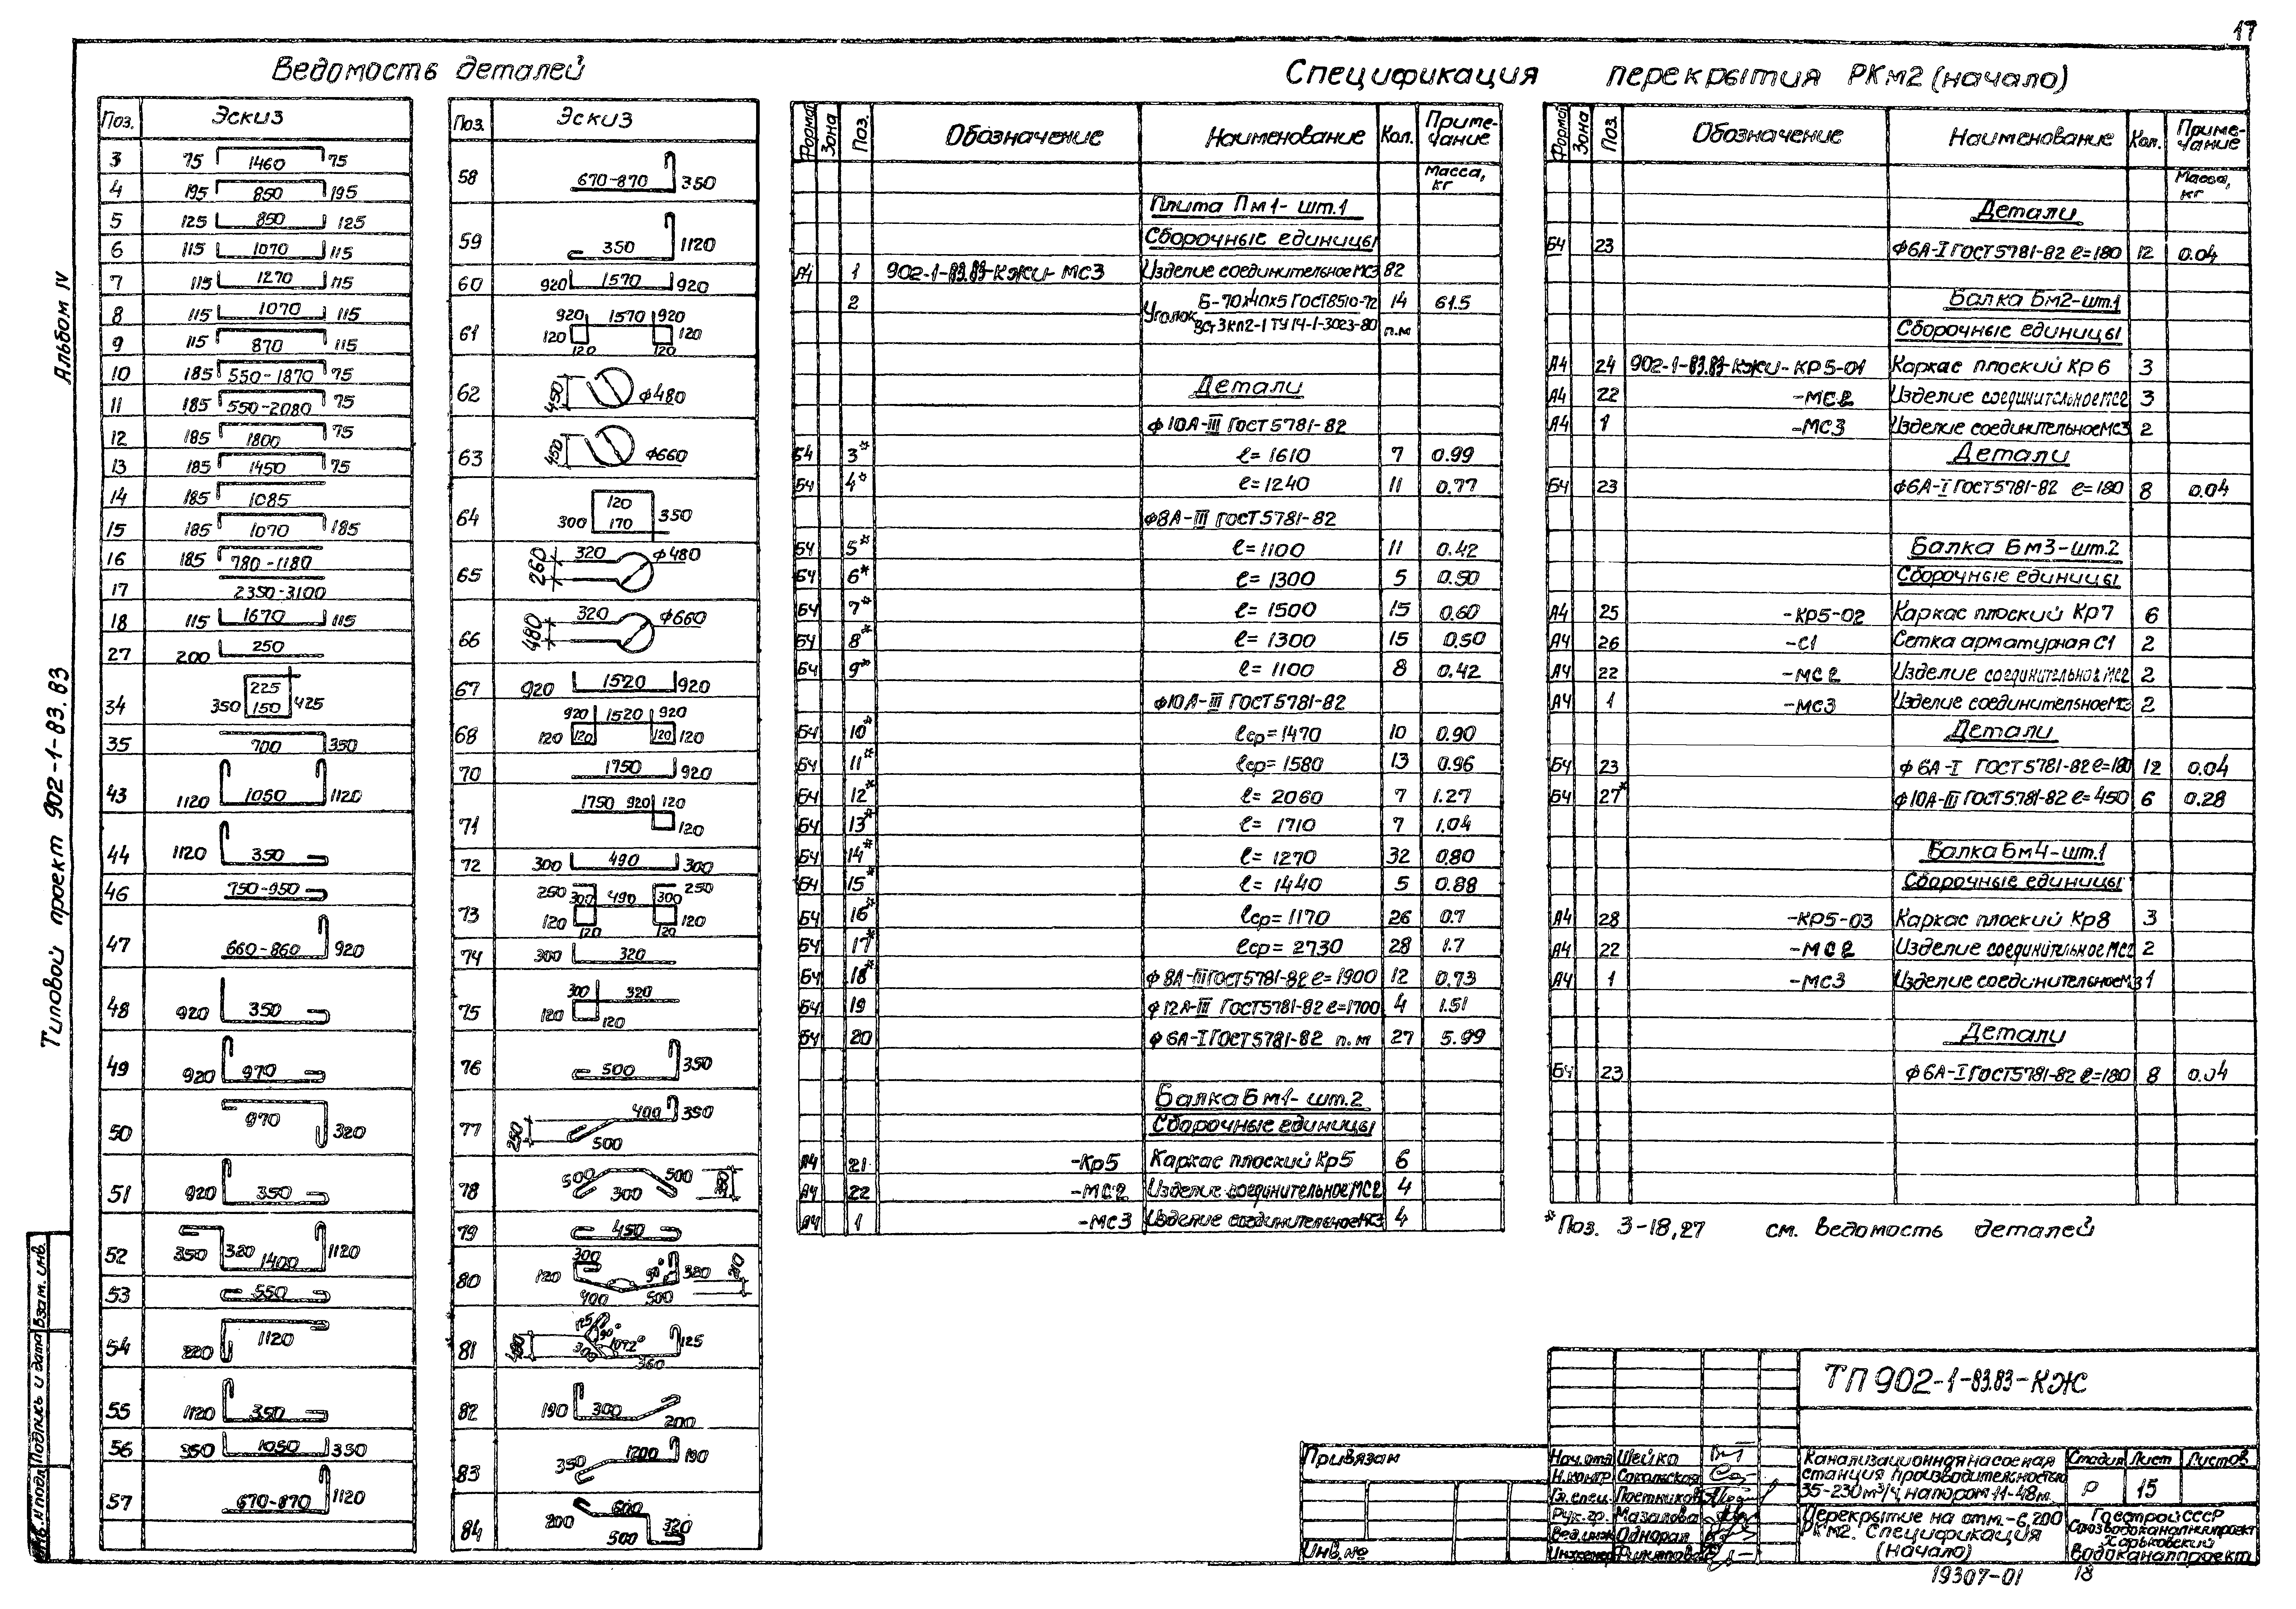 17
Ведомость деталей
Спецификация перекрытия РКм2 (начало)
Альбом IV
Типовой проект 902-1-83.83
Поз. Эскиз
3 75 1460 75
4 195 850 195
5 125 850 125
6 115 1070 115
7 115 1270 115
8 115 1070 115
9 115 870 115
10 185 550-1870 75
11 185 550-2080 75
12 185 1800 75
13 185 1450 75
14 185 1085
15 185 1070 185
16 185 780-1180
17 2350-3100
18 115 1670 115
27 200 250
34 350 225 150 425
35 700 350
43 1120 1050 1120
44 1120 350
46 750-950
47 660-860 920
48 920 350
49 920 970
50 970 320
51 920 350
52 350 320 1400 1120
53 550
54 1120
55 1120 350
56 350 1050 350
57 670-870 1120
Поз. Эскиз
58 670-870 350
59 350 1120
60 920 1570 920
61 920 1570 920 120 120 120 120
62 450 ф480
63 450 ф660
64 120 300 170 350
65 260 320 ф480
66 480 320 ф660
67 920 1520 920
68 920 1520 920 120 120 120 120
70 1750 920
71 1750 920 120 120
72 300 490 300
73 250 300 490 300 250 120 120 120 120
74 300 320
75 300 320 120 120
76 500 350
77 250 400 350 500
78 500 300 500
79 450
80 300 120 90° 320 210 400 500
81 125 360
82 190 300 200
83 350 1200 190
84 200 600 500 320
Формат Зона Поз. Обозначение Наименование Кол. Приме-чание
Масса, кг
Плита Пм1- шт.1
Сборочные единицы
А4 1 902-1-83.83-КЖИ-МС3 Изделие соединительное МС3 82
2 Уголок Б-70х40х5 ГОСТ 8510-72 14 61.5
ВСт3кп2-1 ТУ14-1-3023-80 п.м
Детали
ф10А-III ГОСТ 5781-82
Б4 3* ℓ=1610 7 0.99
Б4 4* ℓ=1240 11 0.77
ф8А-III ГОСТ 5781-82
Б4 5* ℓ=1100 11 0.42
Б4 6* ℓ=1300 5 0.50
Б4 7* ℓ=1500 15 0.60
Б4 8* ℓ=1300 15 0.50
Б4 9* ℓ=1100 8 0.42
ф10А-III ГОСТ 5781-82
Б4 10* ℓср=1470 10 0.90
Б4 11* ℓср=1580 13 0.96
Б4 12* ℓ=2060 7 1.27
Б4 13* ℓ=1710 7 1.04
Б4 14* ℓ=1270 32 0.80
Б4 15* ℓ=1440 5 0.88
Б4 16* ℓср=1170 26 0.7
Б4 17* ℓср=2730 28 1.7
Б4 18* ф8А-III ГОСТ 5781-82 ℓ=1900 12 0.73
Б4 19 ф12А-III ГОСТ 5781-82 ℓ=1700 4 1.51
Б4 20 ф6А-I ГОСТ 5781-82 п.м 27 5.99
Балка Бм1- шт.2
Сборочные единицы
А4 21 -Кр5 Каркас плоский Кр5 6
А4 22 -МС2 Изделие соединительное МС2 4
А4 1 -МС3 Изделие соединительное МС3 4
Формат Зона Поз. Обозначение Наименование Кол. Приме-чание
Масса, кг
Детали
Б4 23 ф6А-I ГОСТ 5781-82 ℓ=180 12 0.04
Балка Бм2-шт.1
Сборочные единицы
А4 24 902-1-83.83-КЖИ-КР5-01 Каркас плоский Кр6 3
А4 22 -МС2 Изделие соединительное МС2 3
А4 1 -МС3 Изделие соединительное МС3 2
Детали
Б4 23 ф6А-I ГОСТ 5781-82 ℓ=180 8 0.04
Балка Бм3-шт.2
Сборочные единицы
А4 25 -КР5-02 Каркас плоский Кр7 6
А4 26 -С1 Сетка арматурная С1 2
А4 22 -МС2 Изделие соединительное МС2 2
А4 1 -МС3 Изделие соединительное МС3 2
Детали
Б4 23 ф6А-I ГОСТ 5781-82 ℓ=180 12 0.04
Б4 27* ф10А-III ГОСТ 5781-82 ℓ=450 6 0.28
Балка Бм4-шт.1
Сборочные единицы
А4 28 -КР5-03 Каркас плоский Кр8 3
А4 22 -МС2 Изделие соединительное МС2 2
А4 1 -МС3 Изделие соединительное МС3 1
Детали
Б4 23 ф6А-I ГОСТ 5781-82 ℓ=180 8 0.04
*Поз. 3-18,27 см. ведомость деталей
ТП 902-1-83.83-КЖ
Привязан
Инв.№
Нач.отд Шейко
Н.контр Сокольская
Гл.спец. Постников
Рук.гр. Мазалова
Вед.инж Однорал
Инженер
Канализационная насосная
станция производительностью
35-230м³/ч, напором 11-48м.
Стадия Лист Листов
Р 15
Перекрытие на отм.-6,200
РКм2. Спецификация
(начало)
Госстрой СССР
Союзводоканалниипроект
Харьковский
Водоканалпроект
Инв.№подл Подпись и дата Взам. инв.
19307-01 18